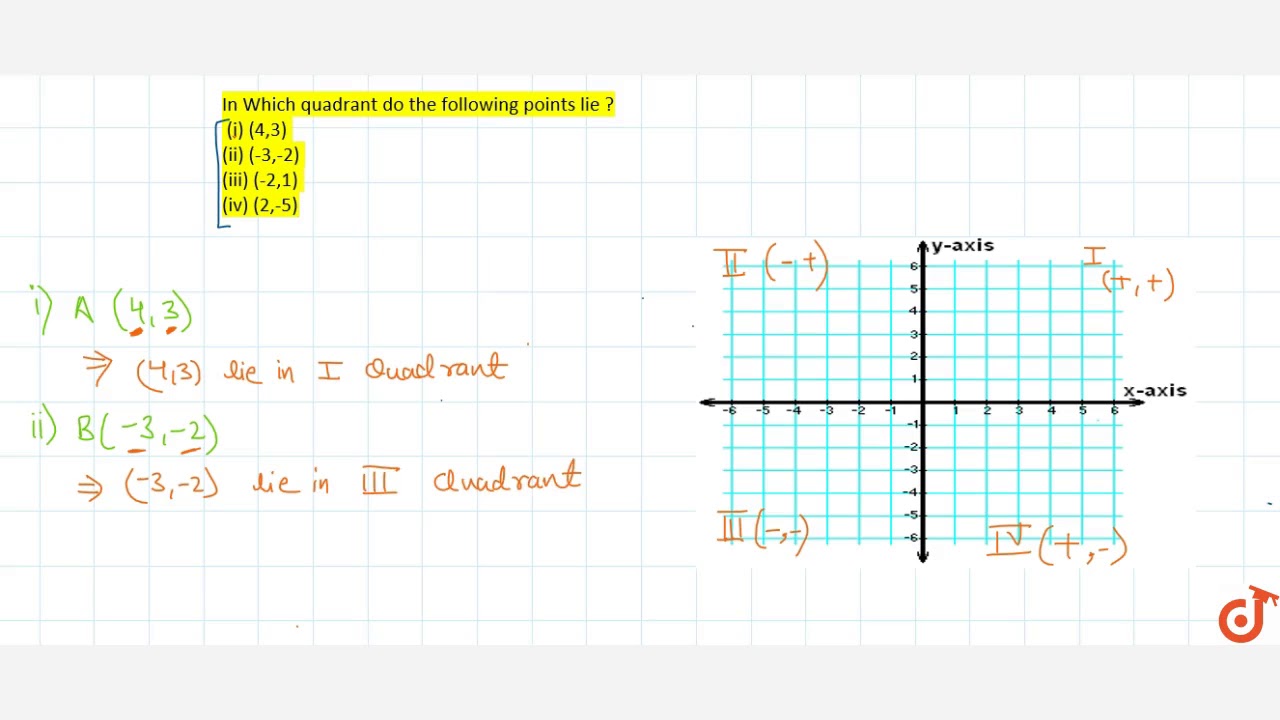 In Which quadrant do the following points lie ?
(i) (4,3)
(ii) (-3,-2)
(iii) (-2,1)
(iv) (2,-5)
i) A (4,3)
⇒ (4,3) lie in I Quadrant
ii) B(-3,-2)
⇒ (-3,-2) lie in III Quadrant
II (-,+)
y-axis
I
(+,+)
6
5
4
3
2
1
x-axis
-6 -5 -4 -3 -2 -1 1 2 3 4 5 6
-1
-2
-3
-4
-5
-6
III (-,-)
IV (+,-)